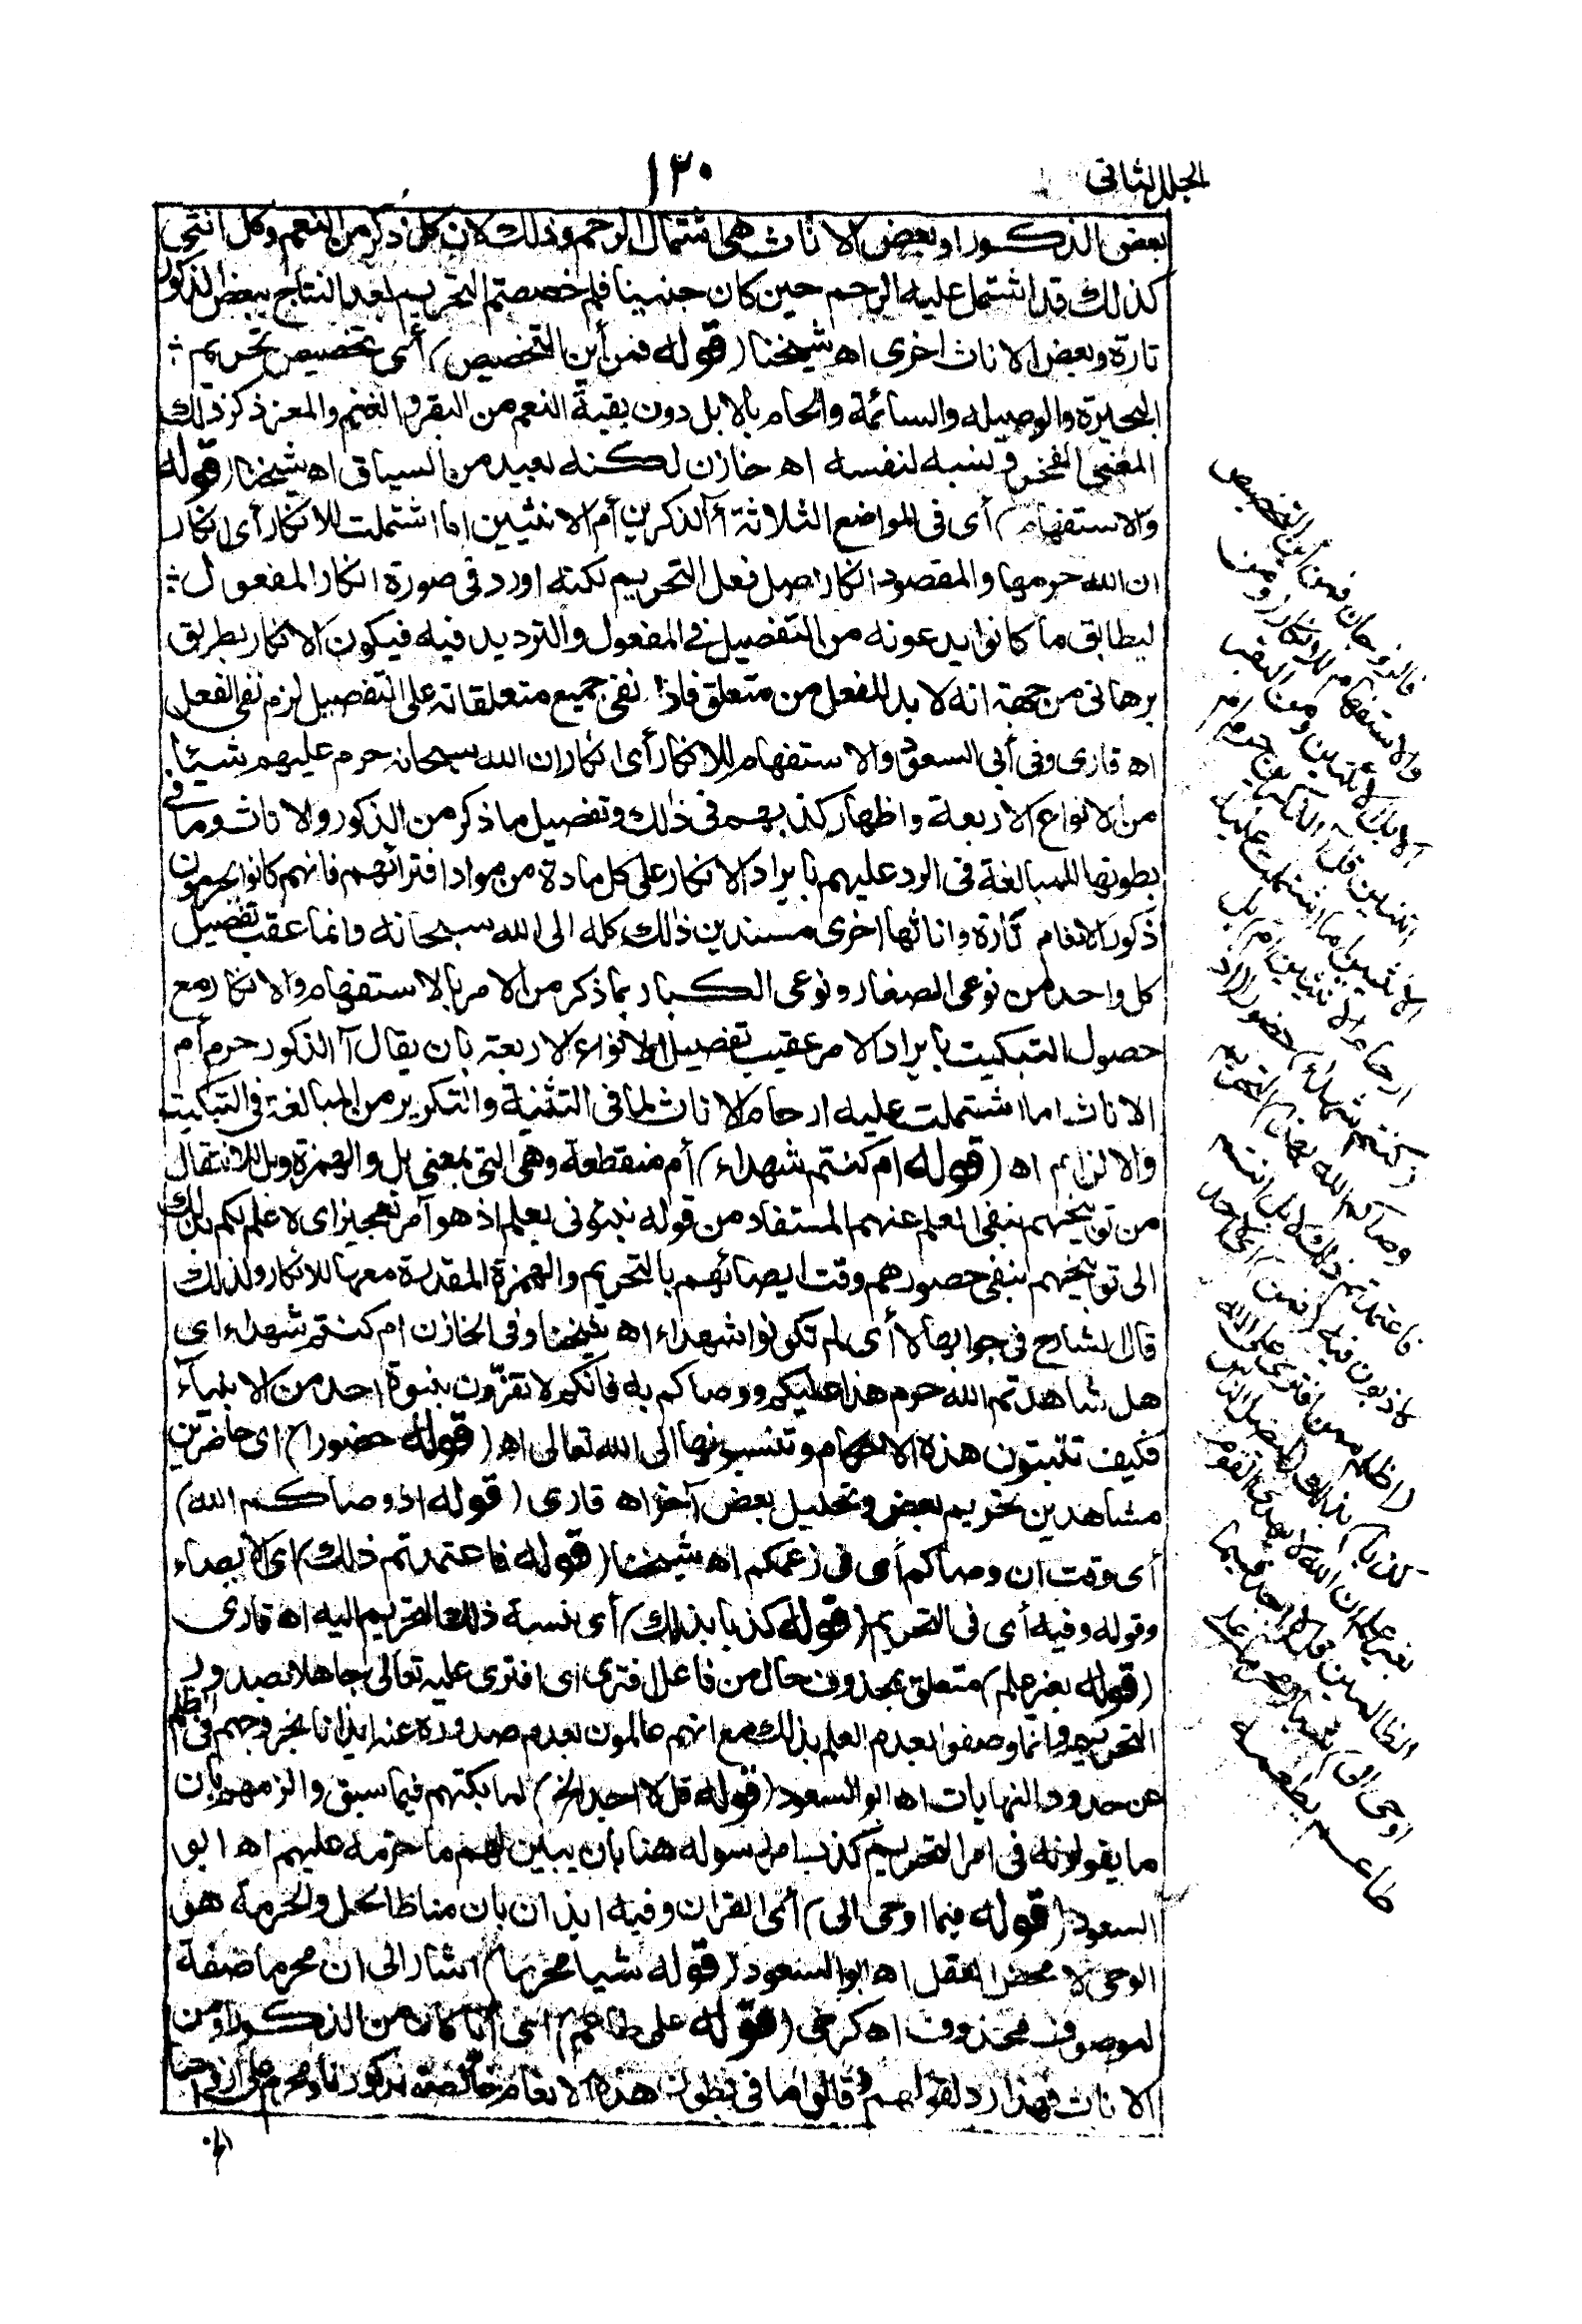 الجلد الثانى
١٣٠
بعض الذكور او بعض الاناث هى اشتمال الرحم وذلك لان كل ذكر من النعم وكل انثى
كذلك قد اشتمل عليه الرحم حين كان جنينا فلم خصصتم التحريم بعد النتاج ببعض الذكور
تارة وبعض الاناث اخرى اه شيخنا (قوله فمن أين التخصيص) أى تخصيص تحريم
البحيرة والوصيله والسائمة والحام بالابل دون بقية النعم من البقر والغنم والمعز ذكر ذلك
المعنى الفخر ونسبه لنفسه اه خازن لكنه بعيد من السياق اه شيخنا (قوله
والاستفهام) أى فى المواضع الثلاثة أآلذكرين أم الانثيين اما اشتملت للانكار أى انكار
ان الله حرمها والمقصود انكار اصل فعل التحريم لكنه اورد فى صورة انكار المفعول
ليطابق ما كانوا يدعونه من التفصيل فى المفعول والترديد فيه فيكون الانكار بطريق
برهانى من جهة انه لا بد للفعل من متعلق فاذا نفى جميع متعلقاته على التفصيل لزم نفى الفعل
اه قارى وفى أبى السعود والاستفهام للانكار أى انكار ان الله سبحانه حرم عليهم شيئا
من الانواع الاربعة واظهار كذبهم فى ذلك وتفصيل ما ذكر من الذكور والاناث وما فى
بطونها للمبالغة فى الرد عليهم بايراد الانكار على كل مادة من مواد افترائهم فانهم كانوا يحرمون
ذكور الانعام تارة واناثها اخرى مسندين ذلك كله الى الله سبحانه وانما عقب تفصيل
كل واحد من نوعى الصغار ونوعى الكبار بما ذكر من الامر بالاستفهام والانكار مع
حصول التبكيت بايراد الامر عقيب تفصيل الانواع الاربعة بان يقال آالذكور حرم أم
الاناث اما اشتملت عليه ارحام الاناث لما فى التثنية والتكرير من المبالغة فى التبكيت
والالزام اه (قوله ام كنتم شهداء) أم منقطعة وهى التى بمعنى بل والهمزة وبل للانتقال
من توبيخهم بنفى العلم عنهم المستفاد من قوله نبئونى بعلم اذ هو آمر تعجيز اى لا علم لكم بذلك
الى توبيخهم بنفى حضورهم وقت ايصائهم بالتحريم والهمزة المقدرة معها للانكار ولذلك
قال الشارح فى جوابها لا أى لم تكونوا شهداء اه شيخنا وفى الخازن ام كنتم شهداء اى
هل شاهدتم الله حرم هذا عليكم ووصاكم به فانكم لا تقرّون بنبوة احد من الانبياء
فكيف تثبتون هذه الاحكام وتنسبونها الى الله تعالى اه (قوله حضورا) اى حاضرين
مشاهدين تحريم بعض وتحليل بعض آخر اه قارى (قوله اذ وصاكم الله)
أى وقت ان وصاكم أى فى زعمكم اه شيخنا (قوله فاعتمدتم ذلك) اى الايصاء
وقوله وفيه أى فى التحريم (قوله كذبا بذلك) أى بنسبة ذلك التحريم اليه اه قارى
(قوله بغير علم) متعلق بمحذوف حال من فاعل افترى اى افترى عليه تعالى جاهلا بصدور
التحريم وانما وصفوا بعدم العلم بذلك مع انهم عالمون بعدم صدوره عنه ايذانا بخروجهم فى الظلم
عن حدود النهايات اه ابو السعود (قوله قل لا اجد الخ) لما بكتهم فيما سبق والزمهم بان
ما يقولونه فى امر التحريم كذب امر رسوله هنا بان يبين لهم ما حرمه عليهم اه ابو
السعود (قوله فيما اوحى الى) أى القران وفيه ايذان بان مناط الحل والحرمة هو
الوحى لا محض العقل اه ابو السعود (قوله شيا محرما) اشار الى ان محرما صفة
لموصوف محذوف اه كرخى (قوله على طاعم) اى أيا كان من الذكور او من
الاناث فهذا رد لقولهم وقالوا ما فى بطون هذه الانعام خالصة لذكورنا ومحرم على ازواجنا
فالزوجان فمن أين التخصيص
والاستفهام للانكار ومن
الابل اثنين ومن البقر
اثنين قل آلذكرين حرم ام
الانثيين اما اشتملت عليه
ارحام الانثيين ام بل
كنتم شهداء حضورا اذ
وصاكم الله بهذا التحريم
فاعتمدتم ذلك لا بل انتم
كاذبون فيه فمن اى لا احد
اظلم ممن افترى على الله
كذبا بذلك ليضل الناس
بغير علم ان الله لا يهدى القوم
الظالمين قل لا اجد فيما
اوحى الى شيا محرما على
طاعم يطعمه